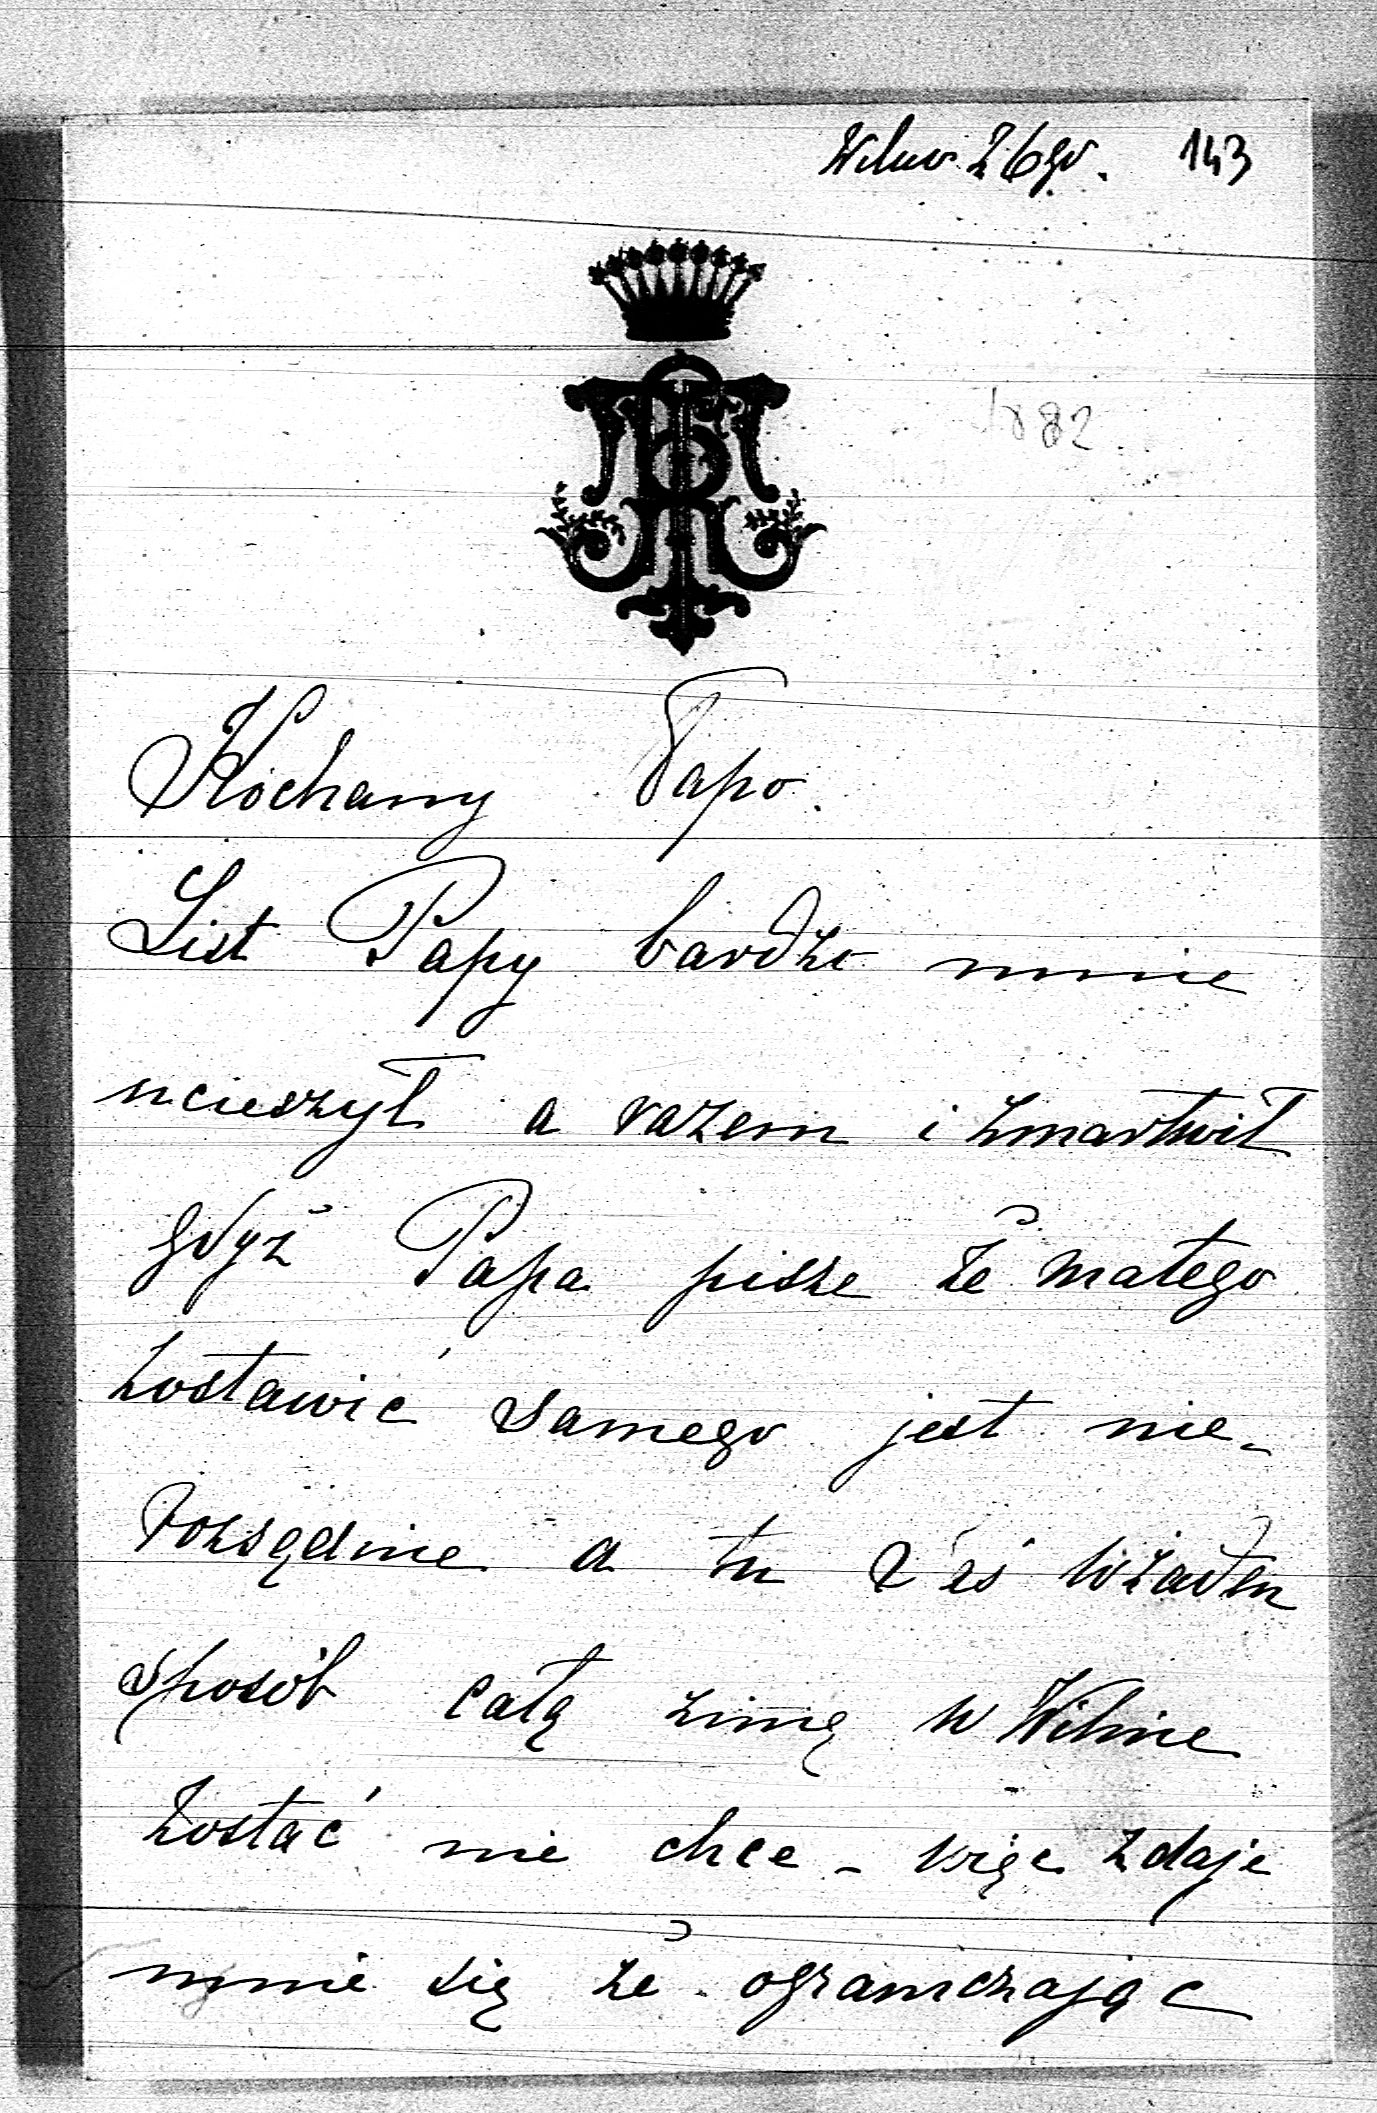 Wilno 26go. 143
1882
Kochany Papo.
List Papy bardzo mnie
ucieszył a razem i zmartwił
gdyż Papa pisze że małego
zostawić samego jest nie-
rozsądnie a tu Reś w żaden
sposób całą zimę w Wilnie
zostać nie chce - więc zdaje
mnie się że ograniczając